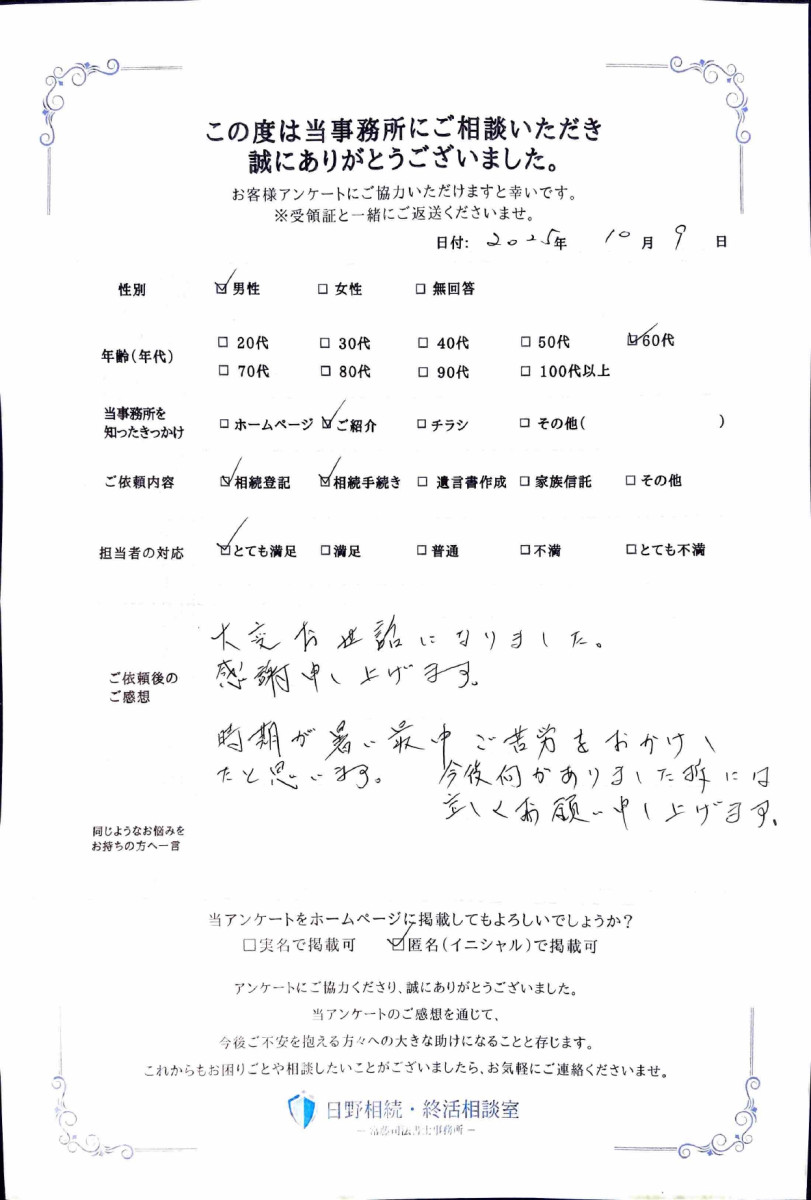 この度は当事務所にご相談いただき
誠にありがとうございました。
お客様アンケートにご協力いただけますと幸いです。
※受領証と一緒にご返送くださいませ。
日付: 2025年 10月 9日
性別 ☑男性 □女性 □無回答
年齢(年代) □20代 □30代 □40代 □50代 ☑60代
□70代 □80代 □90代 □100代以上
当事務所を
知ったきっかけ □ホームページ ☑ご紹介 □チラシ □その他( )
ご依頼内容 ☑相続登記 ☑相続手続き □遺言書作成 □家族信託 □その他
担当者の対応 ☑とても満足 □満足 □普通 □不満 □とても不満
ご依頼後の
ご感想
大変お世話になりました。
感謝申し上げます。
時期が暑い最中ご苦労をおかけし
たと思います。 今後何かありました折には
宜しくお願い申し上げます。
同じようなお悩みを
お持ちの方へ一言
当アンケートをホームページに掲載してもよろしいでしょうか?
□実名で掲載可 ☑匿名(イニシャル)で掲載可
アンケートにご協力くださり、誠にありがとうございました。
当アンケートのご感想を通じて、
今後ご不安を抱える方々への大きな助けになることと存じます。
これからもお困りごとや相談したいことがございましたら、お気軽にご連絡くださいませ。
日野相続・終活相談室
司法書士事務所